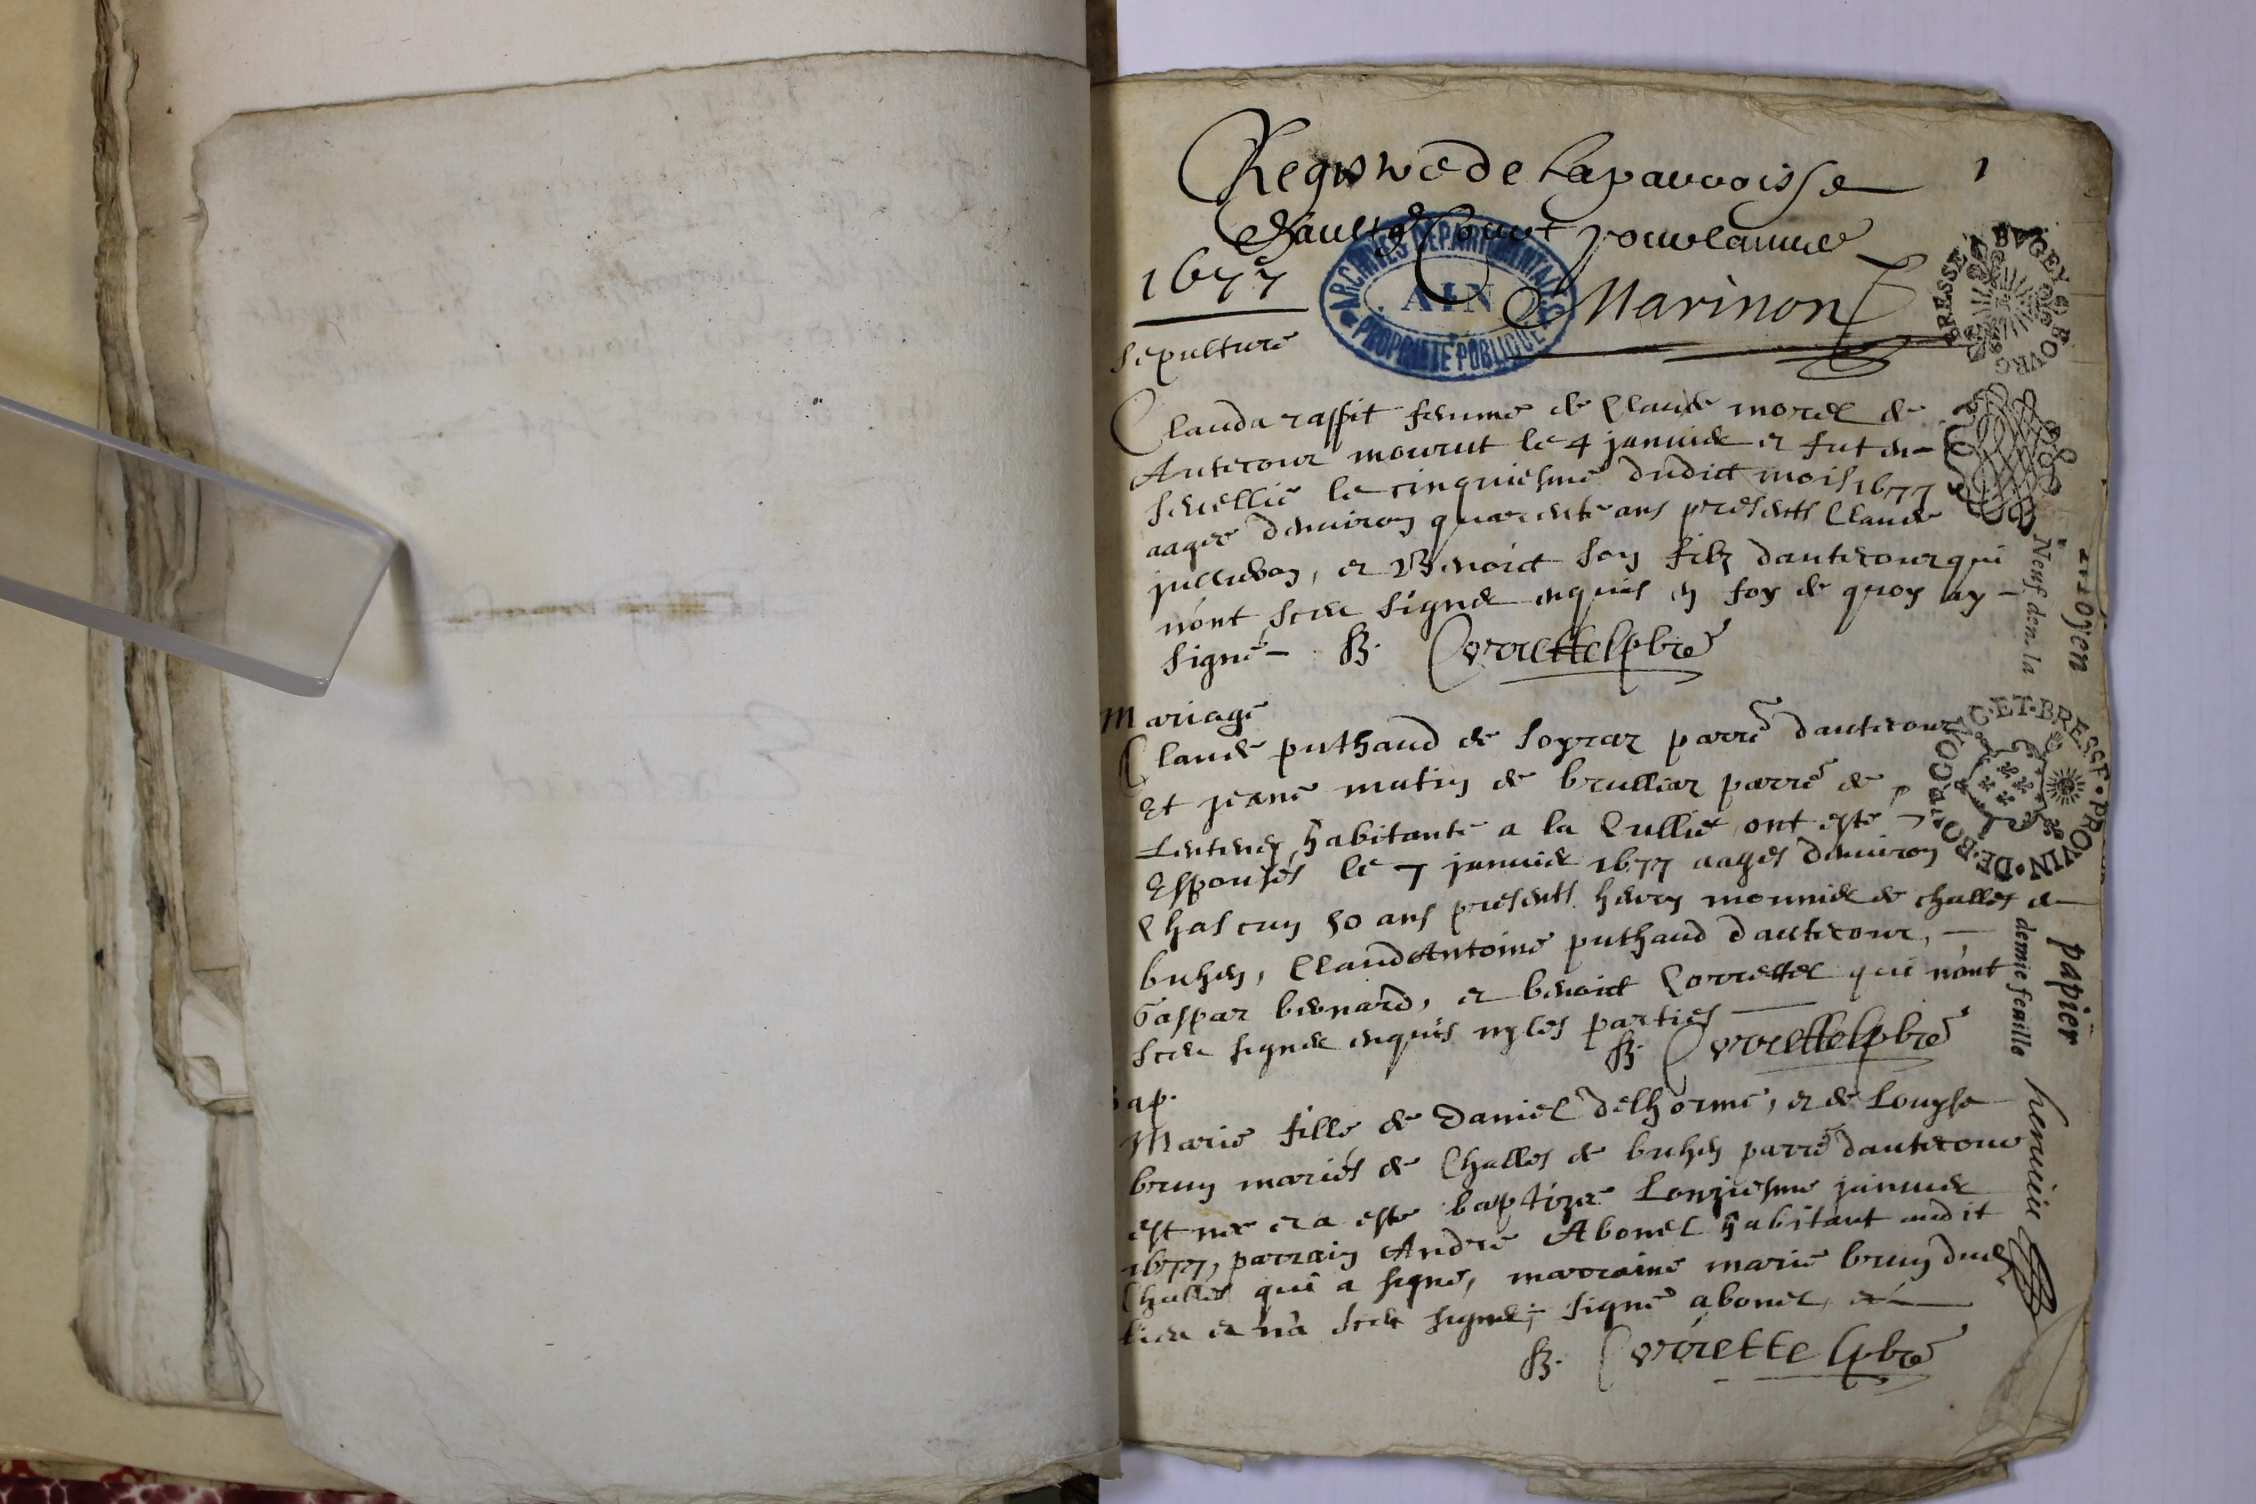 Registre de la parroisse
1
d'aultecourt pour l'annee
1677
Marinon
ARCHIVES DEPARTEMENTALES
AIN
PROPRIETE PUBLIQUE
BRESSE BVGEY BOVRG
Sepulture
Clauda raffit femme de Claude morel de
Autecour mourut le 4 janvier et fut en-
sevellie le cinquiesme dudict mois 1677
aagee d'environ quarente ans presents Claude
jullubon, et Benoict son filz d'autecour qui
n'ont sceu signer enquis en foy de quoy ay
signé B. Correttel pbre
Moyen papier
Neuf den. la demie feuille
Mariage
Claude puthaud de soyrar parre d'autecour
Et jeane mutin de brulliar parre de
Lentenay habitante a la Cullie ont esté
Espousés le 7 janvier 1677 aagés d'environ
Chascun 50 ans presents henry monnier de challes de
buhen, Claude Antoine puthaud d'autecour,
Gaspar bernard, et benoict Correttel qui n'ont
sceu signer enquis ny les parties
B. Correttel pbre
GONG ET BRESSE PROVIN DE BOVRGO
bap.
Marie fille de Daniel delhorme, et de Louyse
brun mariés de Challes de buhen parre d'autecour
est nee et a esté baptizee l'onziesme janvier
1677, parrain André Abonel habitant audit
Challes qui a signé, marraine marie brun dud.
lieu et n'a sceu signer, signé abonel, et
B. Correttel pbre